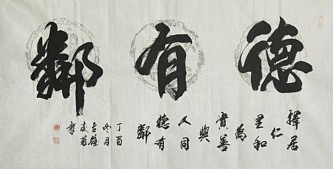 德有鄰
擇居仁
里和
為
貴善
與
人同
德有
鄰
丁酉
冬月